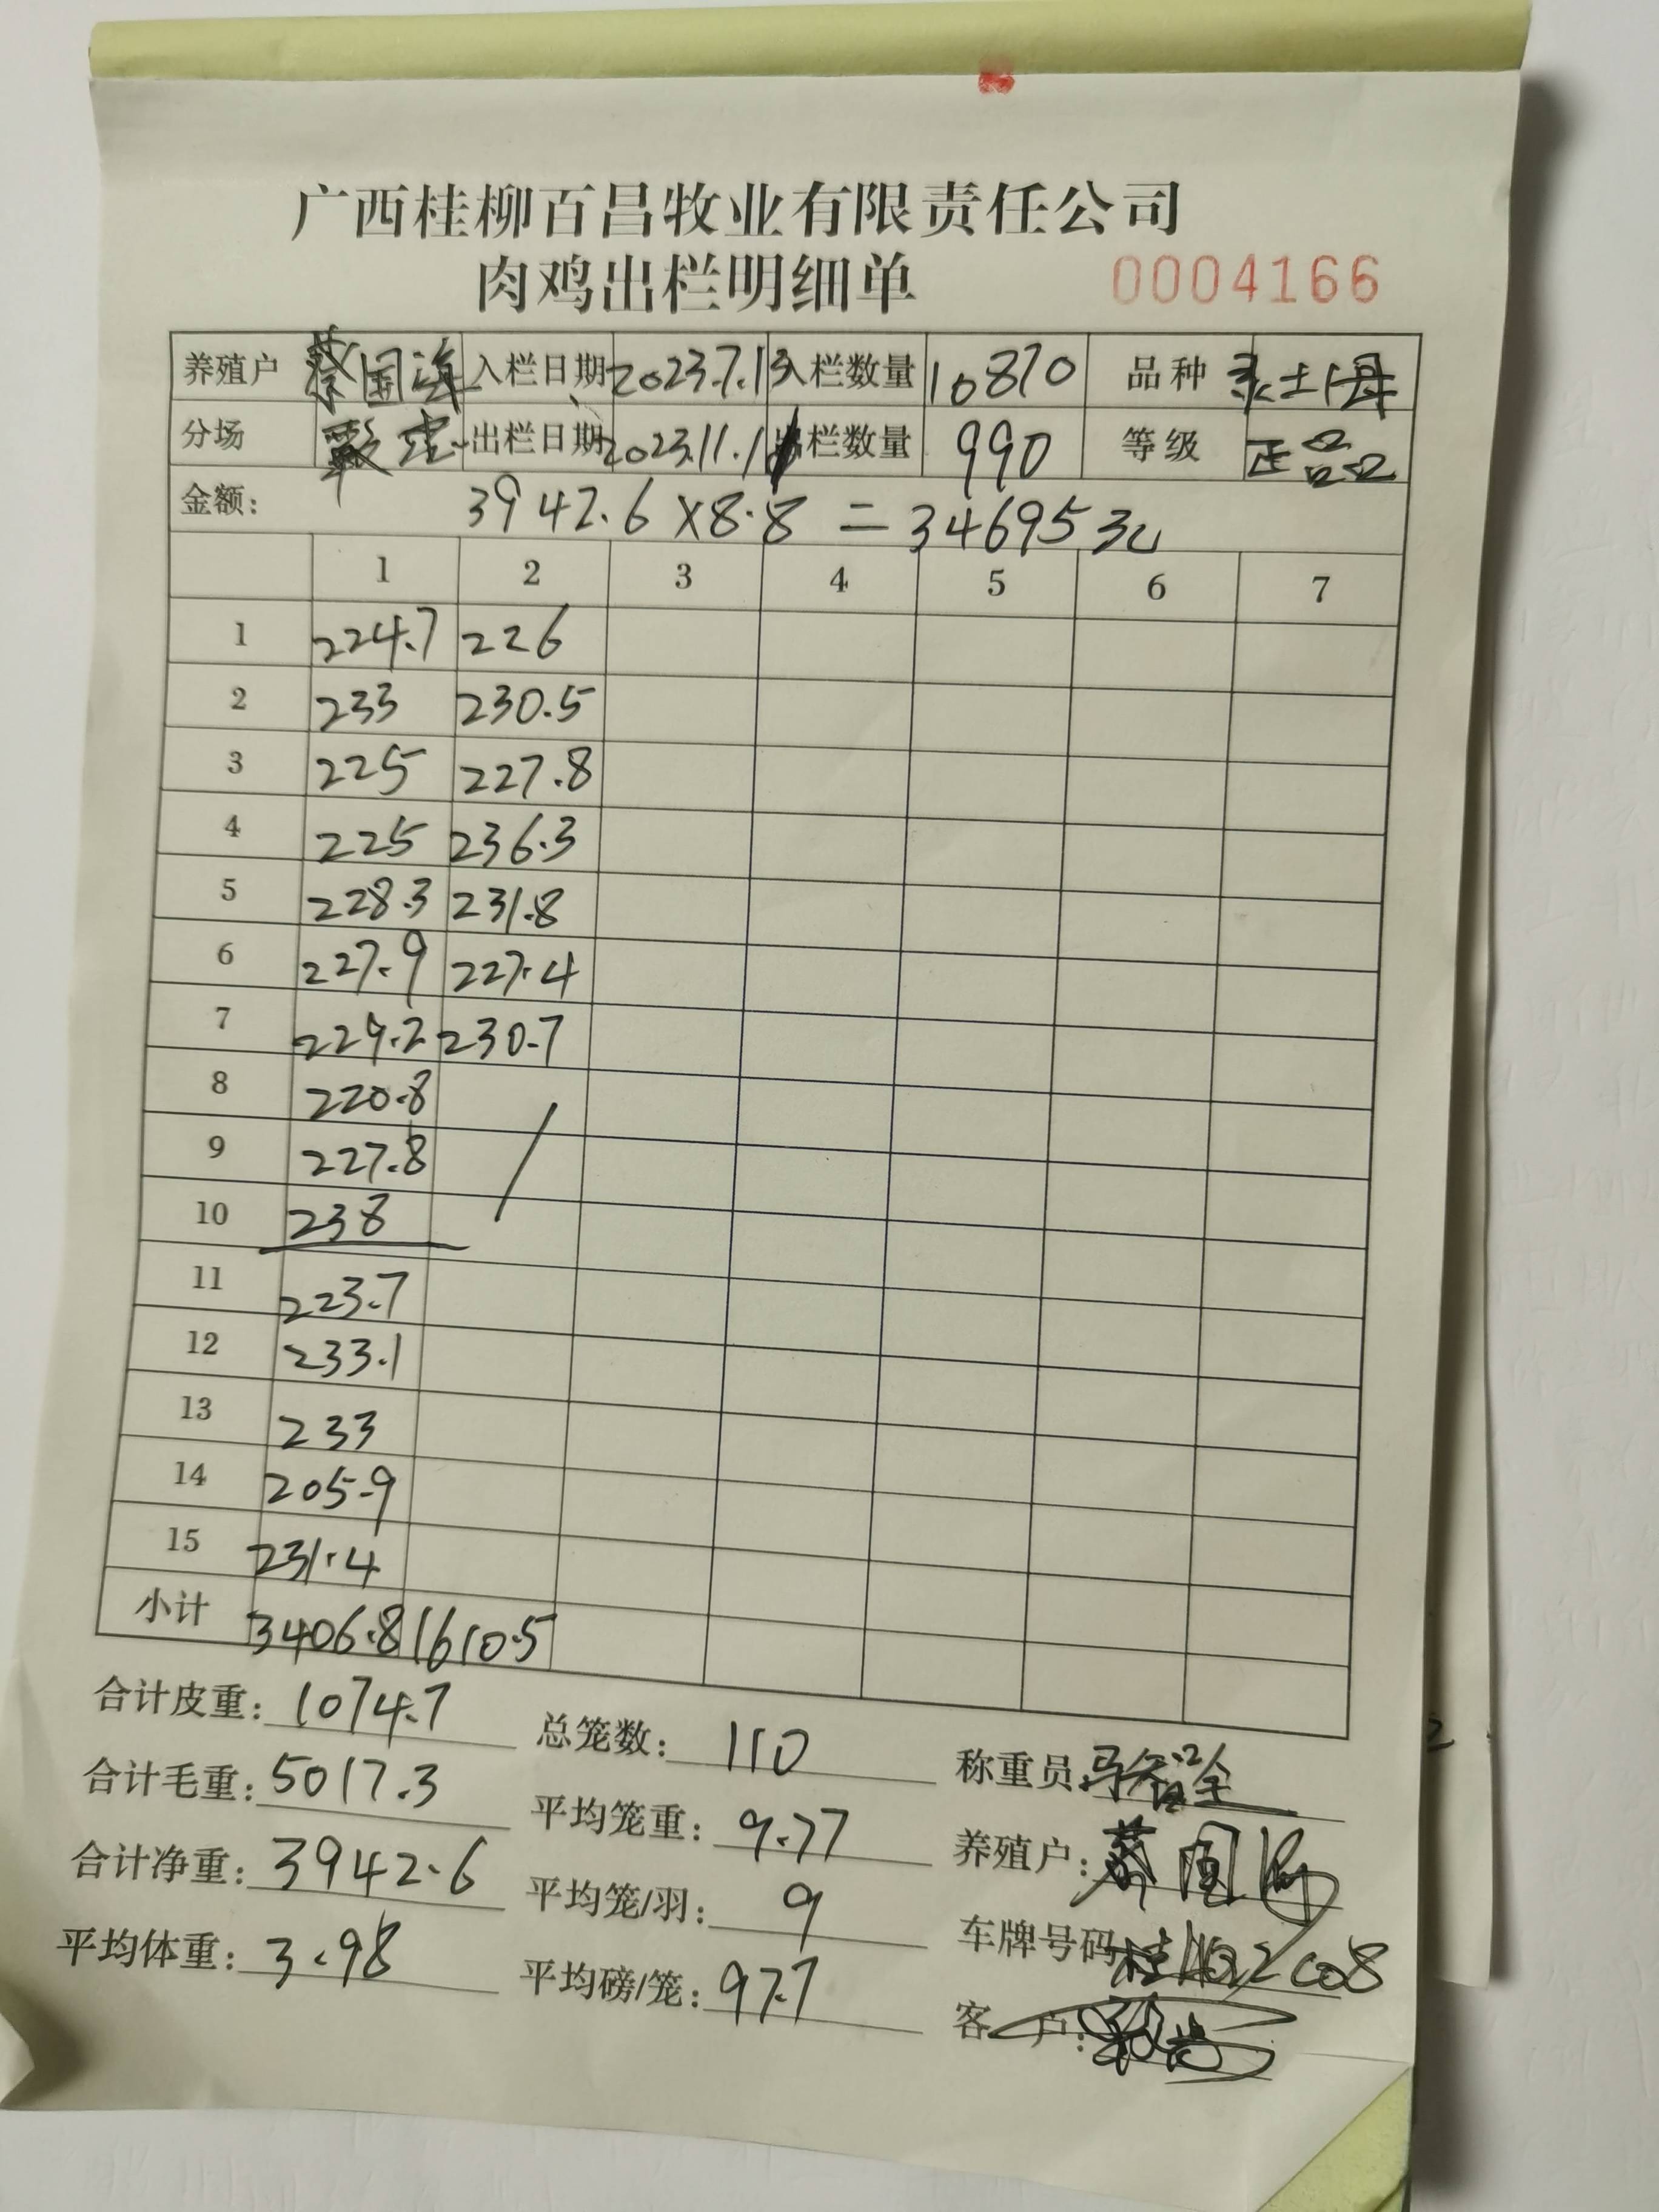 广西桂柳百昌牧业有限责任公司
肉鸡出栏明细单 0004166
养殖户 蔡国海 入栏日期 2023.7.13 入栏数量 10870 品种
分场 出栏日期 2023.11.1 出栏数量 990 等级 正品
金额: 3942.6×8.8=34695元
1 2 3 4 5 6 7
1 224.7 226
2 233 230.5
3 225 227.8
4 225 236.3
5 228.3 231.8
6 227.9 227.4
7 229.2 230.7
8 220.8
9 227.8
10 238
11 223.7
12 233.1
13 233
14 205.9
15 231.4
小计 3406.8 1610.5
合计皮重: 1074.7 总笼数: 110 称重员:
合计毛重: 5017.3 平均笼重: 9.77 养殖户: 蔡国海
合计净重: 3942.6 平均笼/羽: 9 车牌号码
平均体重: 3.98 平均磅/笼: 97.7 客户: